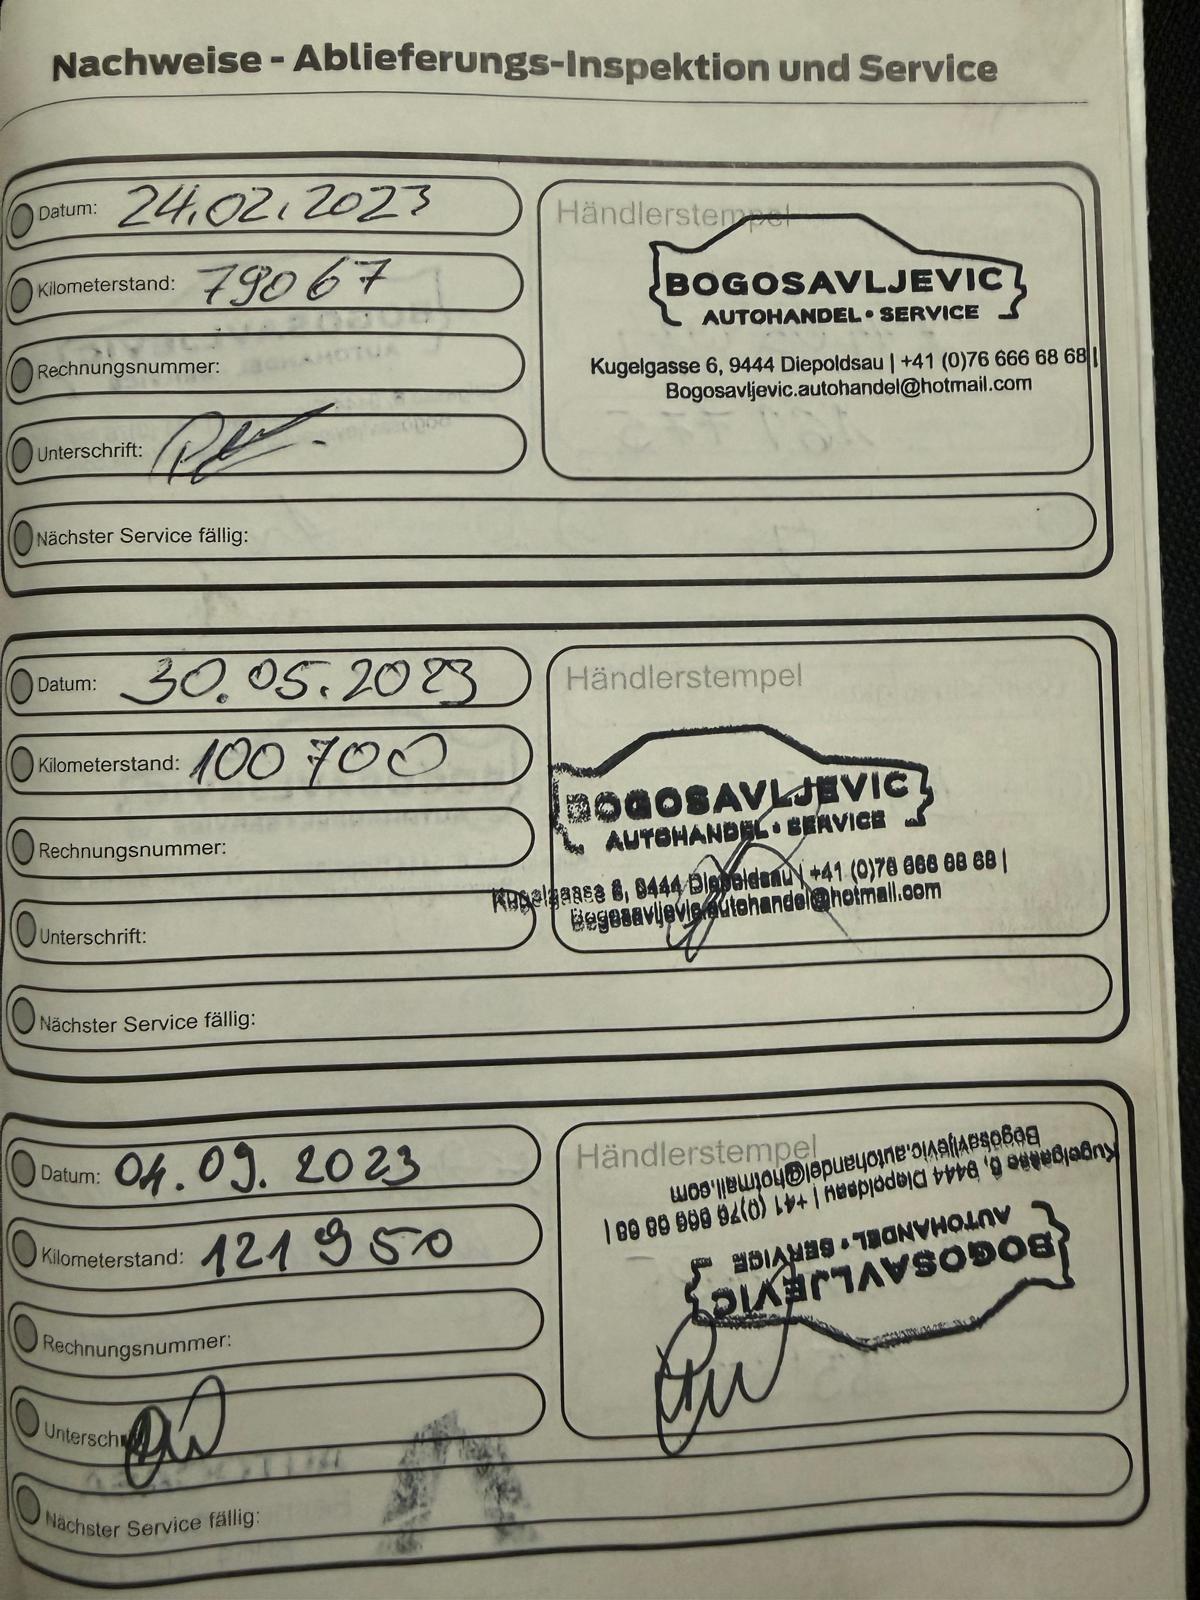 Nachweise - Ablieferungs-Inspektion und Service
Datum: 24.02.2023
Kilometerstand: 79067
Rechnungsnummer:
Unterschrift:
Nächster Service fällig:
Händlerstempel
BOGOSAVLJEVIC
AUTOHANDEL • SERVICE
Kugelgasse 6, 9444 Diepoldsau | +41 (0)76 666 68 68 |
Bogosavljevic.autohandel@hotmail.com
Datum: 30.05.2023
Kilometerstand: 100700
Rechnungsnummer:
Unterschrift:
Nächster Service fällig:
Händlerstempel
BOGOSAVLJEVIC
AUTOHANDEL • SERVICE
Kugelgasse 6, 9444 Diepoldsau | +41 (0)76 666 68 68 |
Bogosavljevic.autohandel@hotmail.com
Datum: 04.09.2023
Kilometerstand: 121950
Rechnungsnummer:
Nächster Service fällig:
Händlerstempel
BOGOSAVLJEVIC
AUTOHANDEL • SERVICE
Kugelgasse 6, 9444 Diepoldsau | +41 (0)76 666 68 68 |
Bogosavljevic.autohandel@hotmail.com